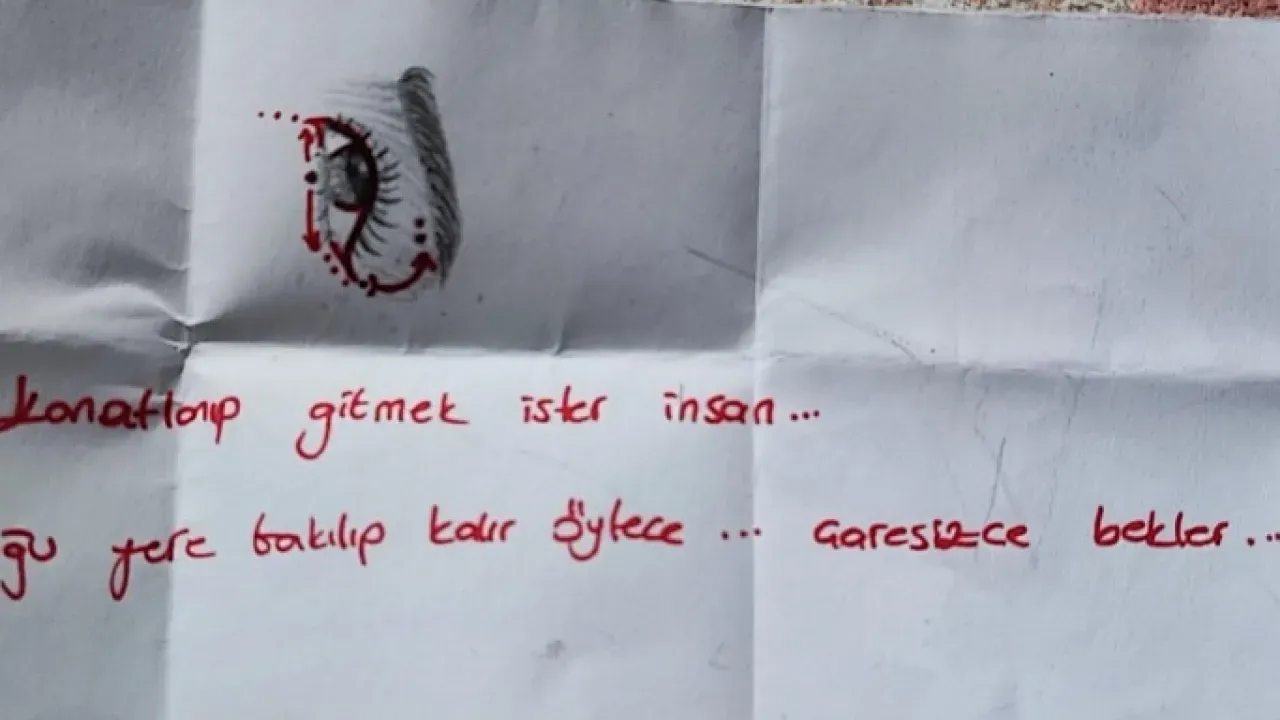 kanatlanıp gitmek ister insan...
ğu yere bakılıp kalır öylece ... çaresizce bekler...